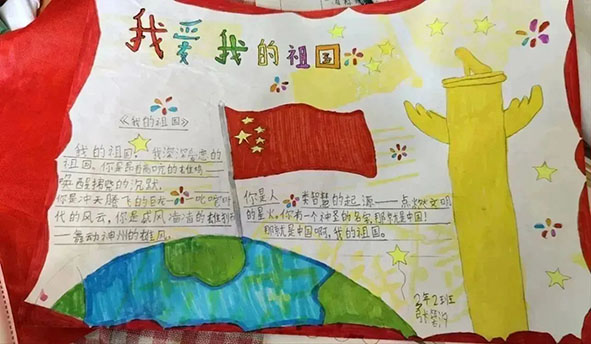 我爱我的祖国
《我的祖国》
我的祖国，我深深爱恋的
祖国。你是昂首高吭的雄鸡——
唤醒拂晓的沉默，
你是冲天腾飞的巨龙——叱咤时
代的风云，你是威风凛凛的雄狮
——舞动神州的雄风。
你是人类智慧的起源——点燃文明
的星火。你有一个神圣的名字，那就是中国！
那就是中国啊，我的祖国。
2年2班